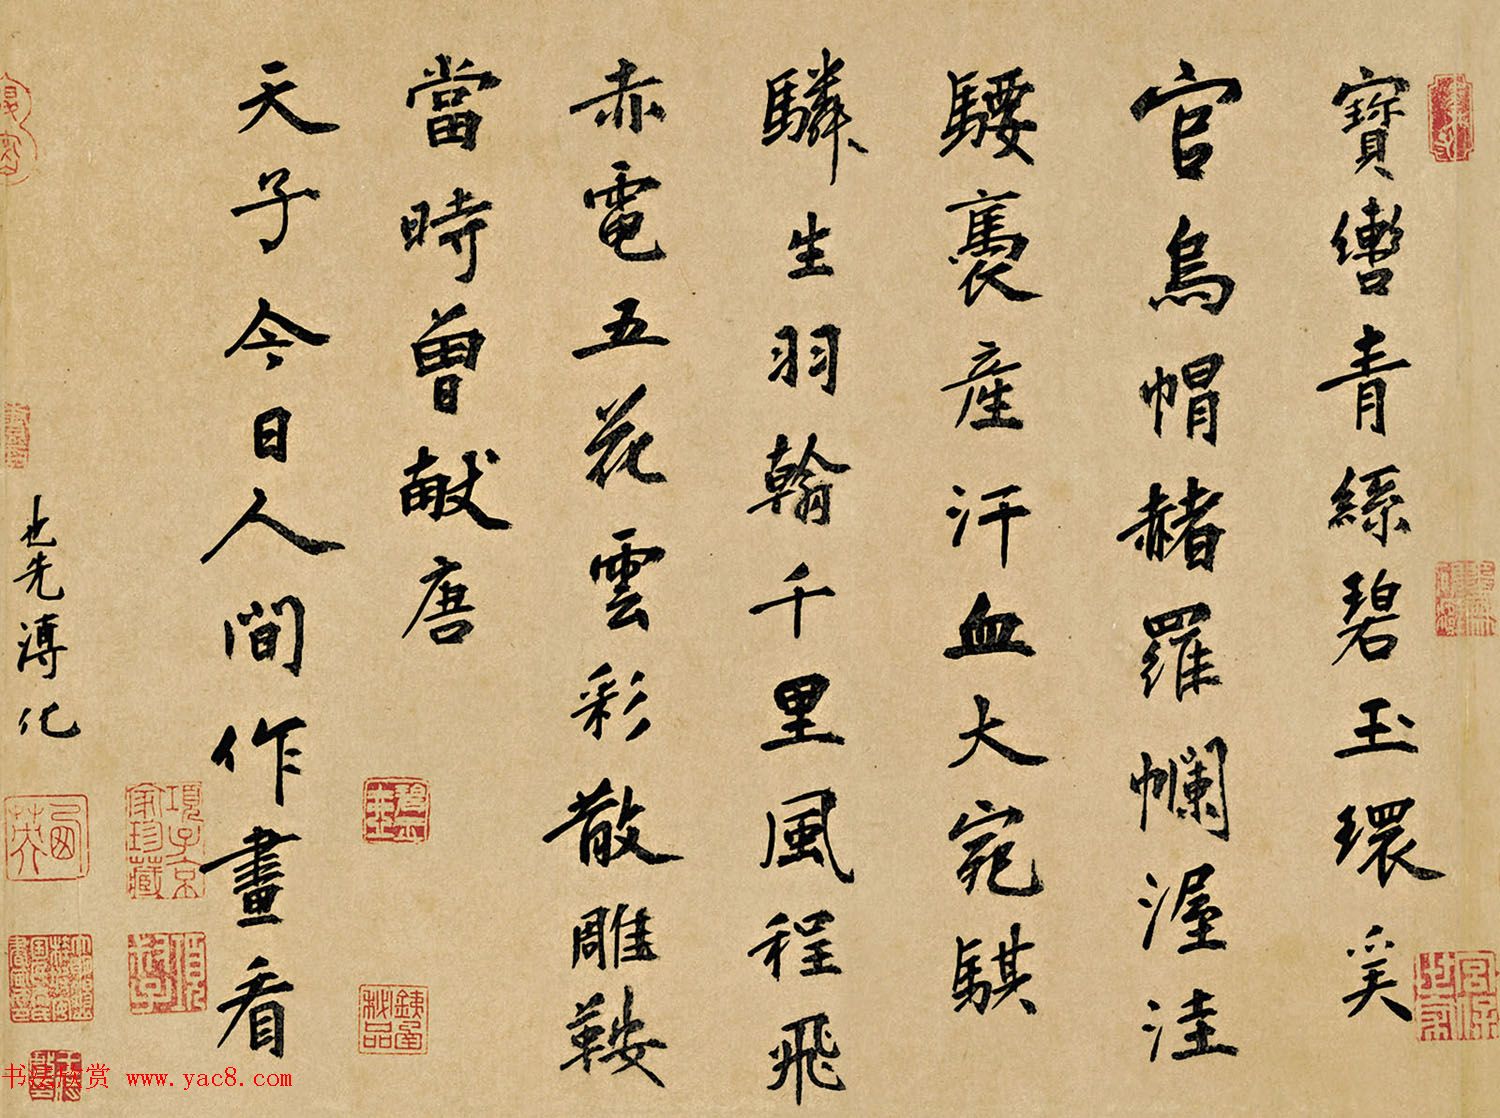 寶轡青絲碧玉環奚
官烏帽赭羅襴渥洼
騕褭產汗血大宛騏
驎生羽翰千里風程飛
赤電五花雲彩散雕鞍
當時曾献唐
天子今日人間作畫看
也先溥化
項子京家珍藏
书法欣赏 www.yac8.com